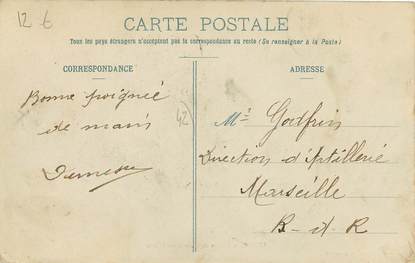 12 €
CARTE POSTALE
Tous les pays étrangers n'acceptent pas la correspondance au recto (Se renseigner à la Poste)
CORRESPONDANCE
ADRESSE
Bonne poignée
de mains
42
Mr
Direction d'Artillerie
Marseille
B-d-R